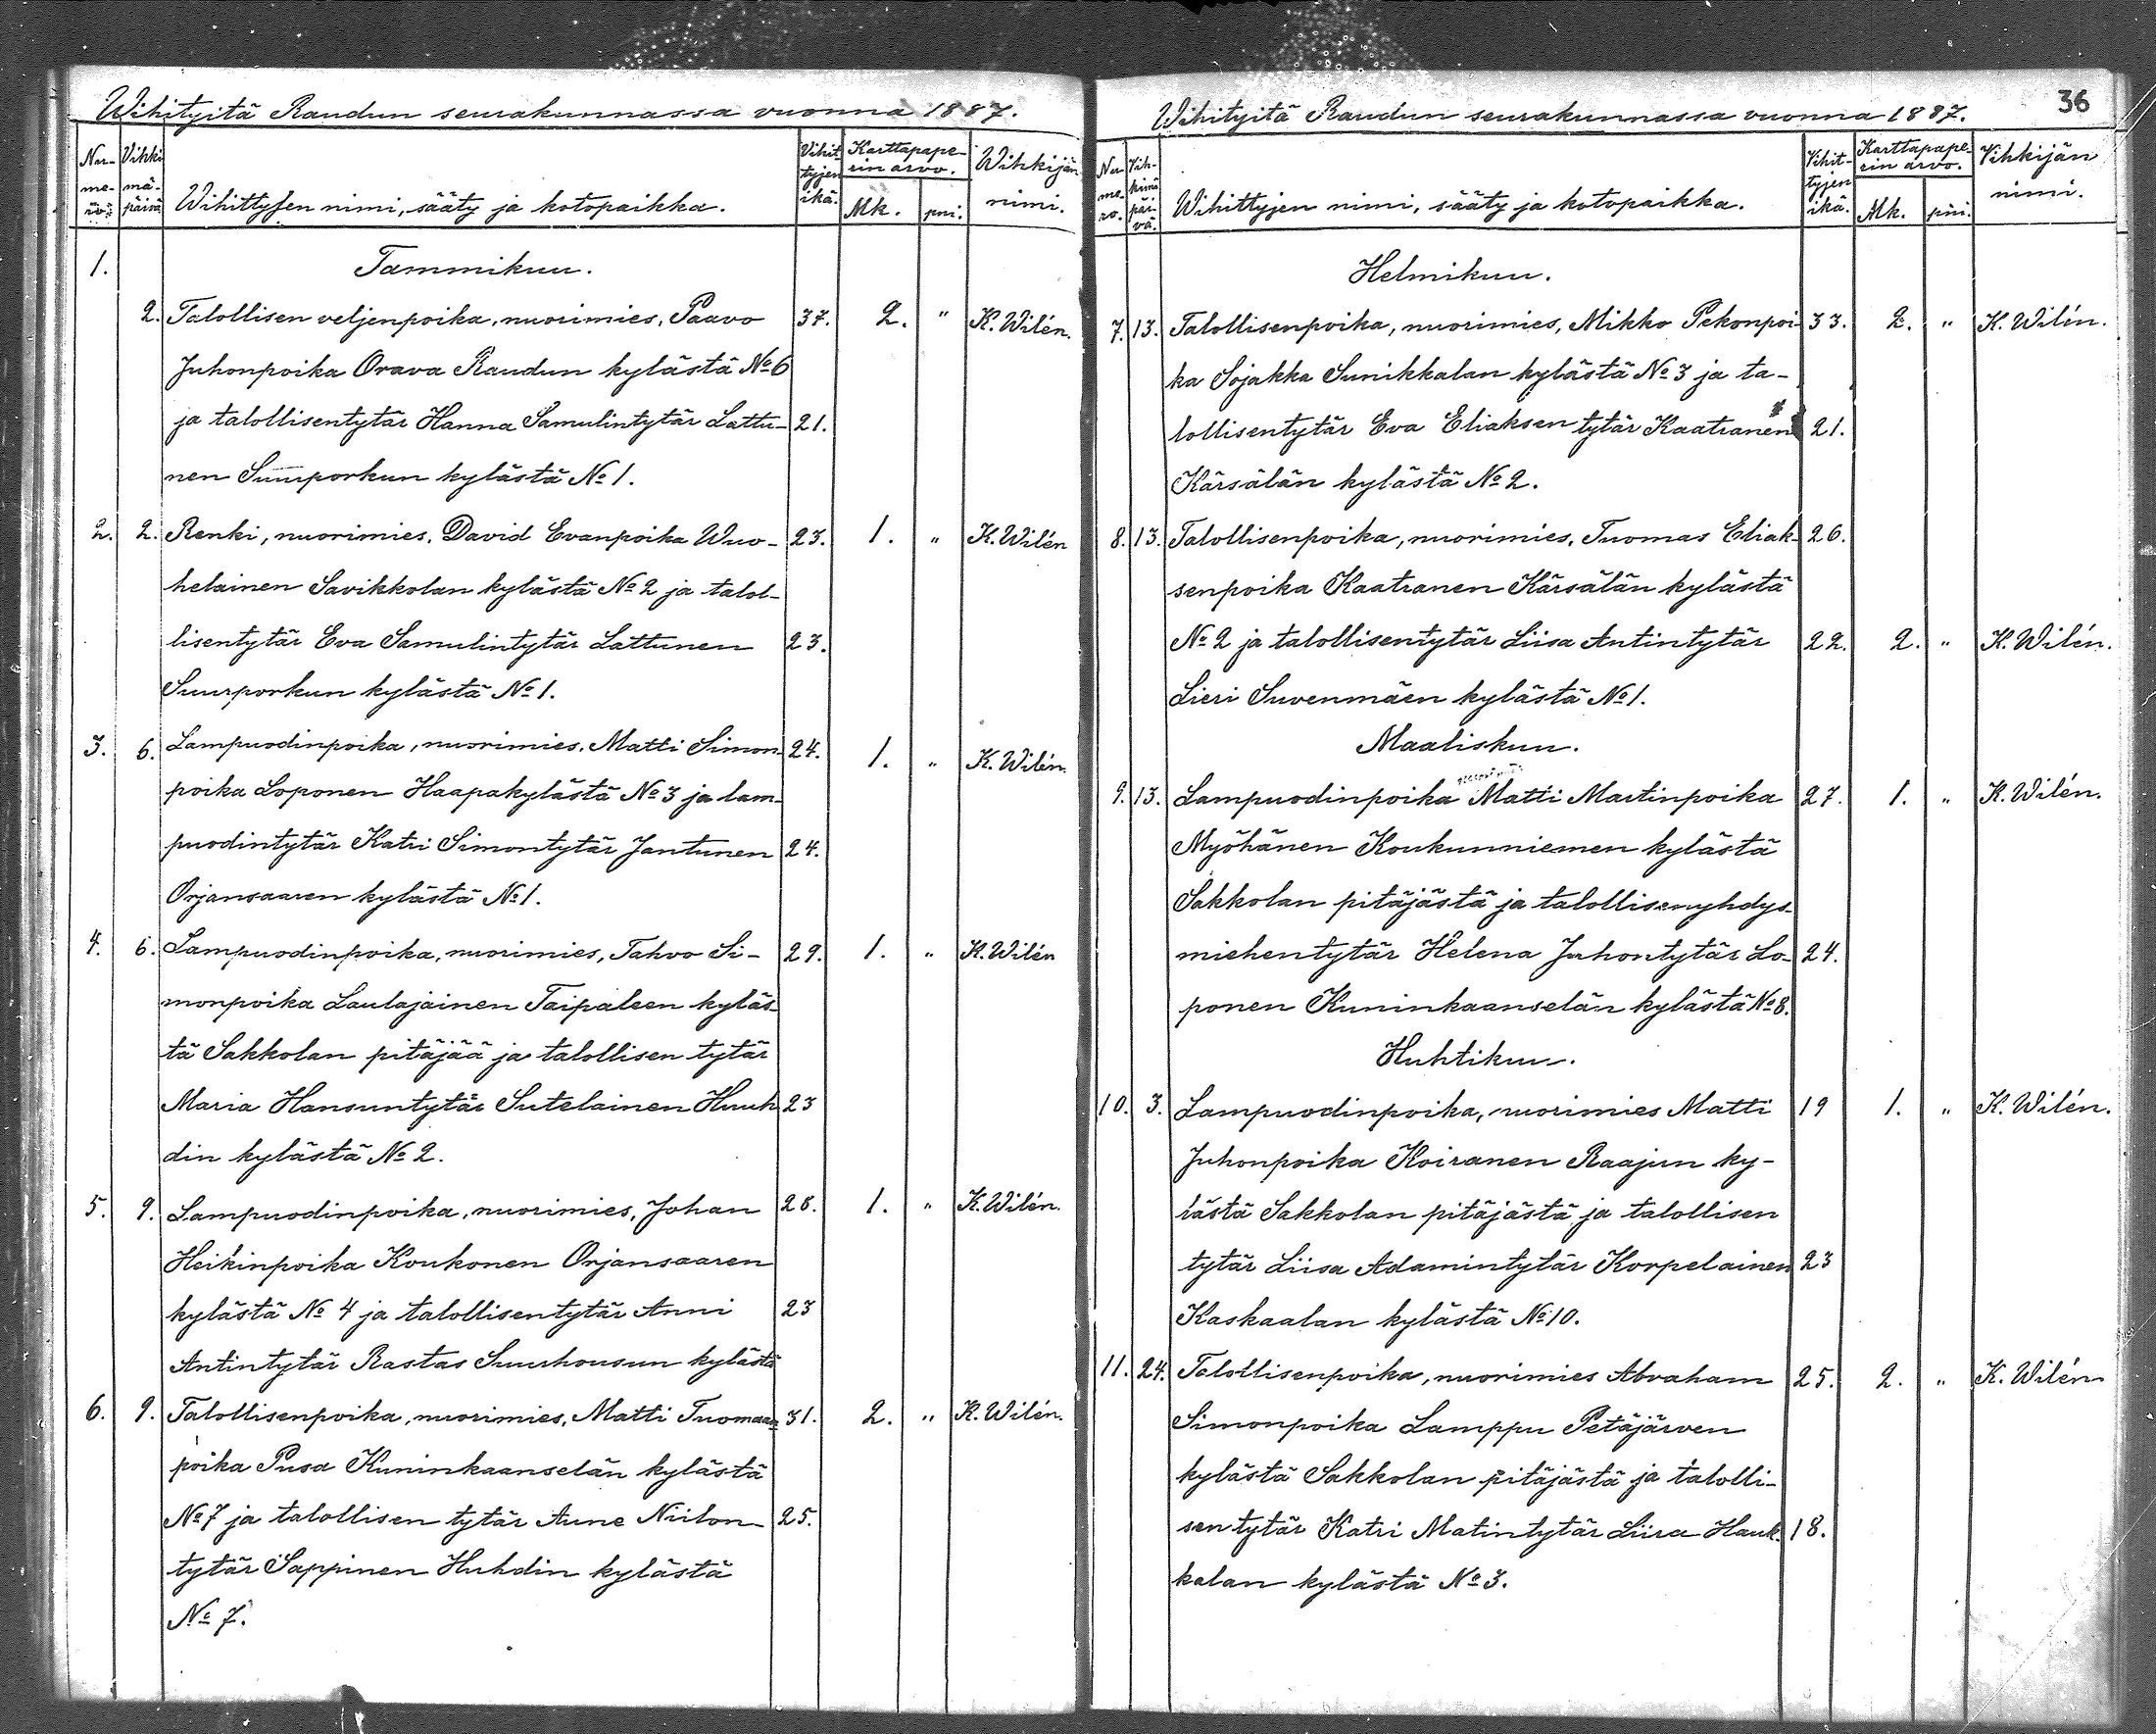 Wihityitä Raudun seurakunnassa vuonna 1887.
Nu-
me-
ro.
Vihki
mä-
päivä
Wihittyjen nimi, sääty ja kotopaikka.
Vihit
tyjen
ikä.
Karttapape-
rin arvo.
Mk. pni.
Wihkijän
nimi.
1. Tammikuu.
2. Talollisen veljenpoika, nuorimies, Paavo 37. 2. " K. Wilén.
Juhonpoika Orava Raudun kylästä No 6
ja talollisentytär Hanna Samulintytär Lattu- 21.
nen Suurporkun kylästä No 1.
2. 2. Renki, nuorimies, David Evanpoika Wuo- 23. 1. " K. Wilén
helainen Savikkolan kylästä No 2 ja talol-
lisentytär Eva Samulintytär Lattunen 23.
Suurporkun kylästä No 1.
3. 6. Lampuodinpoika, nuorimies, Matti Simon- 24. 1. " K. Wilén.
poika Loponen Haapakylästä No 3 ja lam-
puodintytär Katri Simontytär Jantunen 24.
Orjansaaren kylästä No 1.
4. 6. Lampuodinpoika, nuorimies, Tahvo Si- 29. 1. " K. Wilén
monpoika Laulajainen Taipaleen kyläs-
tä Sakkolan pitäjää ja talollisen tytär
Maria Hansuntytär Sutelainen Huuh 23
din kylästä No 2.
5. 9. Lampuodinpoika, nuorimies, Johan 28. 1. " K. Wilén.
Heikinpoika Koukonen Orjansaaren
kylästä No 4 ja talollisentytär Anni 23
Antintytär Rastas Suurhousun kylästä
6. 9. Talollisenpoika, nuorimies, Matti Tuomaan 31. 2. " K. Wilén.
poika Pusa Kuninkaanselän kylästä
No 7 ja talollisen tytär Aune Niilon- 25.
tytär Sappinen Huhdin kylästä
No 7.
36
Wihityitä Raudun seurakunnassa vuonna 1887.
Nu
me-
ro.
Vih-
kimä
päi-
vä.
Wihittyjen nimi, sääty ja kotopaikka.
Vihit-
tyjen
ikä.
Karttapape-
rin arvo.
Mk. pni.
Vihkijän
nimi.
Helmikuu.
7. 13. Talollisenpoika, nuorimies, Mikko Pekonpoi- 33. 2. " K. Wilén.
ka Sojakka Sunikkalan kylästä No 3 ja ta-
lollisentytär Eva Eliaksen tytär Kaatranen 21.
Kärsälän kylästä No 2.
8. 13. Talollisenpoika, nuorimies, Tuomas Eliak- 26.
senpoika Kaatranen Kärsälän kylästä
No 2 ja talollisentytär Liisa Antintytär 22. 2. " K. Wilén.
Lieri Suvenmäen kylästä No 1.
Maaliskuu.
9. 13. Lampuodinpoika Matti Martinpoika 27. 1. " K. Wilén.
Myöhänen Koukunniemen kylästä
Sakkolan pitäjästä ja talollisenyhdys-
miehentytär Helena Juhontytär Lo- 24.
ponen Kuninkaanselän kylästä No 8.
Huhtikuu.
10. 3. Lampuodinpoika, nuorimies Matti 19 1. " K. Wilén.
Juhonpoika Koiranen Raajun ky-
lästä Sakkolan pitäjästä ja talollisen
tytär Liisa Adamintytär Korpelainen 23
Kaskaalan kylästä No 10.
11. 24. Talollisenpoika, nuorimies Abraham 25. 2. " K. Wilén
Simonpoika Lamppu Petäjärven
kylästä Sakkolan pitäjästä ja talolli-
sen tytär Katri Matintytär Liira Hauk- 18.
kalan kylästä No 3.